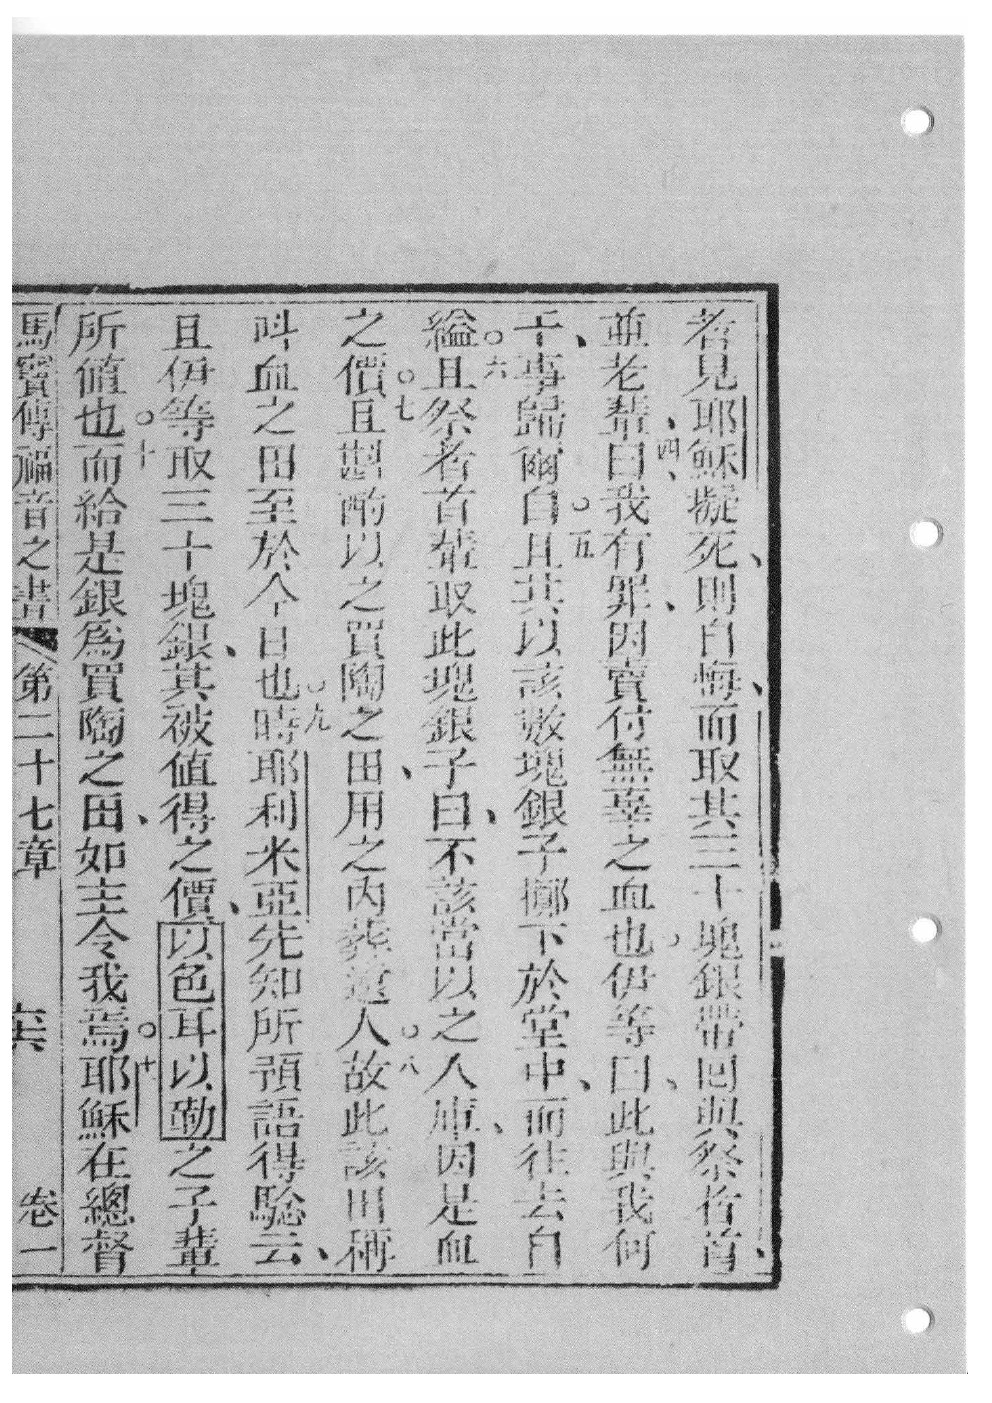 者見耶穌擬死、則自悔、而取其三十塊銀帶回與祭者首、
並老輩、四曰、我有罪、因賣付無辜之血也。伊等曰、此與我何
干、事歸爾自。五且其以該數塊銀子擲下於堂中、而往去自
縊。六且祭者首輩取此塊銀子曰、不該當以之入庫、因是血
之價。七且斟酌以之買陶之田、用之內葬遠人。八故此該田稱
呌血之田至於今日也。九時耶利米亞先知所預語得驗云、
且伊等取三十塊銀、其被值得之價、以色耳以勒之子輩
所值也。十而給是銀爲買陶之田、如主令我焉。十耶穌在總督
馬竇傳福音之書 第二十七章 卷一